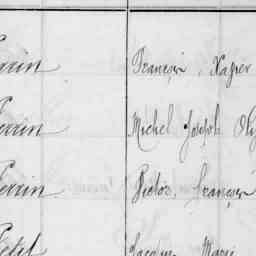 Perrin François, Xavier
Perrin Michel Joseph
Perrin Victor, François
Petit Marie